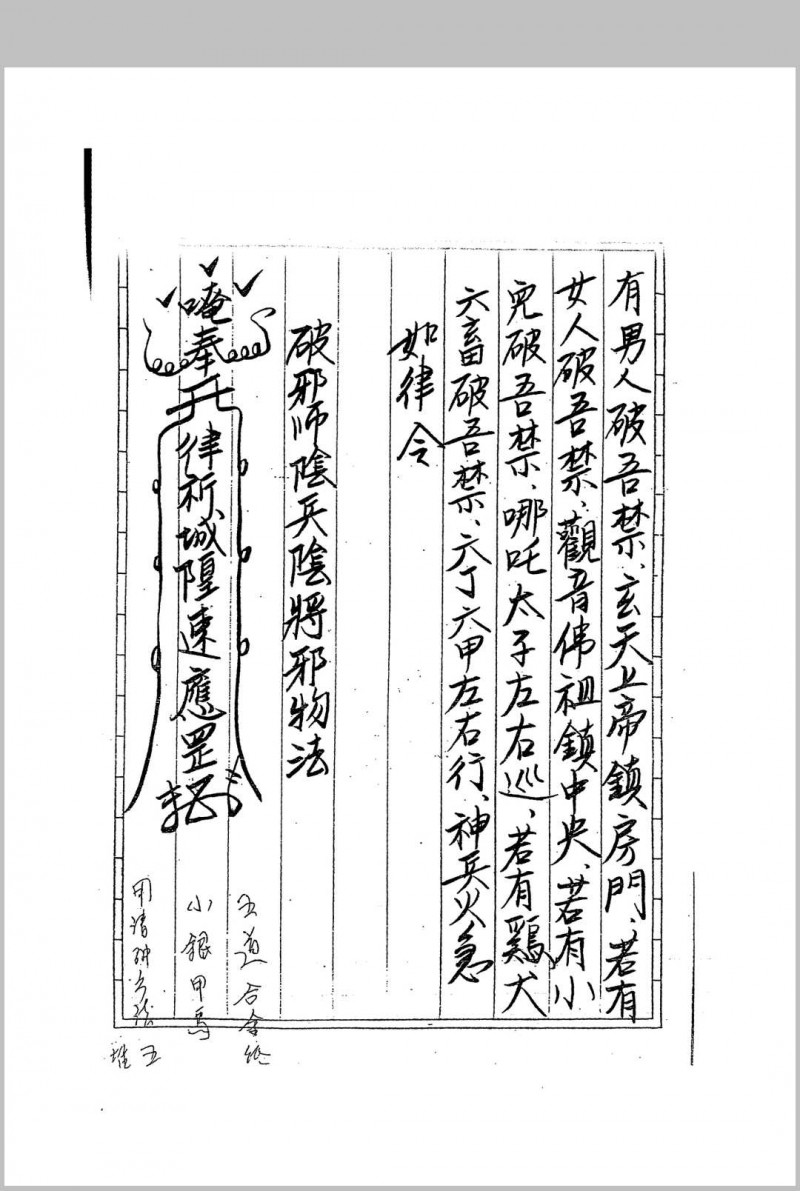 有男人破吾禁、玄天上帝鎮房門、若有
女人破吾禁、觀音佛祖鎮中央、若有小
兒破吾禁、哪吒太子左右巡、若有鷄犬
六畜破吾禁、六丁六甲左右行、神兵火急
如律令
破邪师陰兵陰將邪物法
唵奉
律祈城隍速應罡
小銀甲馬